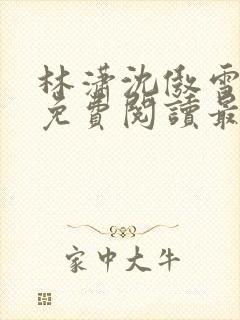 林瀟沈傲雪
免費閱讀最
家中大牛